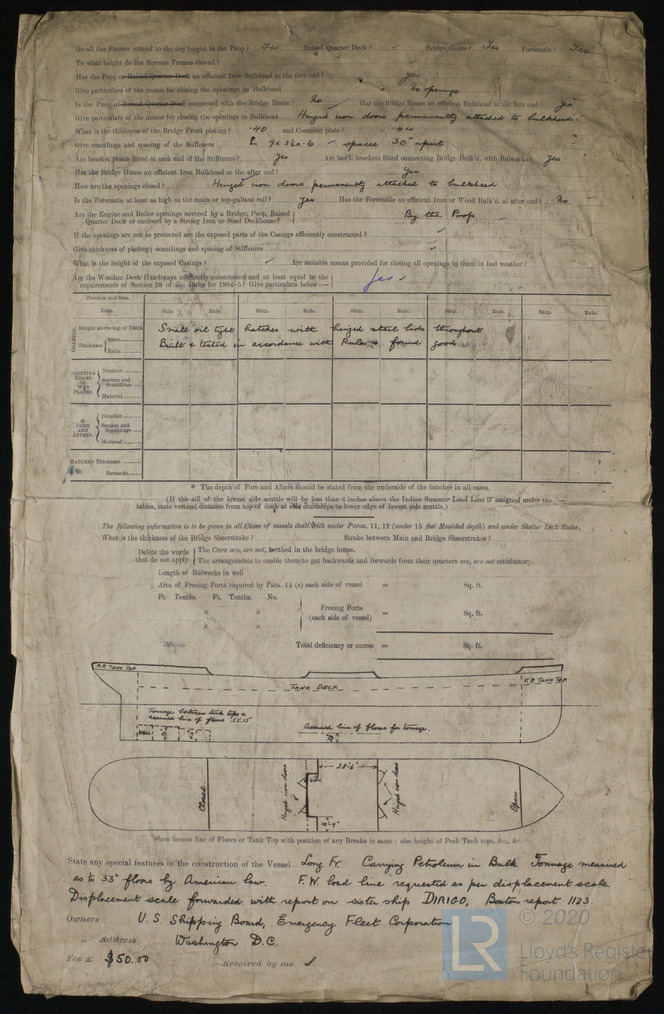 Do all the Frames extend to the top height in the Poop? Yes Raised Quarter Deck? ✓ Bridge House? Yes Forecastle? Yes
To what height do the Reverse Frames extend?
Has the Poop or Raised Quarter Deck an efficient Iron Bulkhead at the fore end? yes
Give particulars of the means for closing the openings in Bulkhead no openings
Is the Poop or Raised Quarter Deck connected with the Bridge House? No Has the Bridge House an efficient Bulkhead at the fore end? Yes
Give particulars of the means for closing the openings in Bulkhead Hinged iron doors permanently attached to bulkhead.
What is the thickness of the Bridge Front plating? .40 and Coaming plate? .44
Give scantlings and spacing of the Stiffeners spaced 30" apart
Are bracket plates fitted at each end of the Stiffeners? Yes Are horl brackets fitted connecting Bridge Bulk'd, with Bulwarks? Yes
Has the Bridge House an efficient Iron Bulkhead at the after end? Yes
How are the openings closed? Hinged iron doors permanently attached to bulkhead
Is the Forecastle at least as high as the main or top-gallant rail? Yes Has the Forecastle an efficient Iron or Wood Bulk'd. at after end? No
Are the Engine and Boiler openings covered by a Bridge, Poop, Raised By the Poop
Quarter Deck or enclosed by a Strong Iron or Steel Deckhouse?
If the openings are not so protected are the exposed parts of the Casings efficiently constructed? ✓
Give thickness of plating; scantlings and spacing of Stiffeners ✓
What is the height of the exposed Casings? ✓ Are suitable means provided for closing all openings in them in bad weather? ✓
Are the Weather Deck Hatchways efficiently constructed and at least equal to the
requirements of Section 28 of the Rules for 1904-5? Give particulars below:— yes ✓
Position and Size.
Item. Ship. Rule. Ship. Rule. Ship. Rule. Ship. Rule. Ship. Rule.
COAMINGS. Height above top of Deck Small oil tight hatches with hinged steel lids throughout
Thickness Sides Ends Built & tested in accordance with Rules & found good
SHIFTING BEAMS OR WEB PLATES. Number
Section and Scantlings
Material
* FORE AND AFTERS. Number
Section and Scantlings
Material
HATCHES Thickness
Remarks
* The depth of Fore and Afters should be stated from the underside of the hatches in all cases.
(If the sill of the lowest side scuttle will be less than 6 inches above the Indian Summer Load Line if assigned under the
tables, state vertical distance from top of deck at side amidships to lower edge of lowest side scuttle.)
The following information is to be given in all Cases of vessels dealt with under Paras. 11, 12 (under 15 feet Moulded depth) and under Shelter Deck Rules.
What is the thickness of the Bridge Sheerstrake? Strake between Main and Bridge Sheerstrakes?
Delete the words The Crew are, are not, berthed in the bridge house.
that do not apply The arrangements to enable them to get backwards and forwards from their quarters are, are not satisfactory.
Length of Bulwarks in well
Area of Freeing Ports required by Para. 11 (e) each side of vessel = Sq. ft.
Ft. Tenths. Ft. Tenths. No.
× × Freeing Ports
(each side of vessel) = Sq. ft.
× ×
Total deficiency or excess = Sq. ft.
A.P. TANK TOP
TANK DECK
F.P. TANK TOP
Tonnage between tank tops &
assumed line of floors 55.15
Assumed line of floors for tonnage.
Closed
Hinged iron doors
28'-6"
Hinged iron doors
Open
Show hereon line of Floors or Tank Top with position of any Breaks in same: also height of Peak Tank tops, &c., &c.
State any special features in the construction of the Vessel Long Fr. Carrying Petroleum in Bulk Tonnage measured
as to 33" floors by American law. F.W. load line requested as per displacement scale.
Displacement scale forwarded with report on sister ship DIRIGO, Boston report 1123.
Owners U.S. Shipping Board, Emergency Fleet Corporation
„ Address Washington D.C.
Fee £ $50.00 Received by me ✓
LR © 2020
Lloyd's Register
Foundation